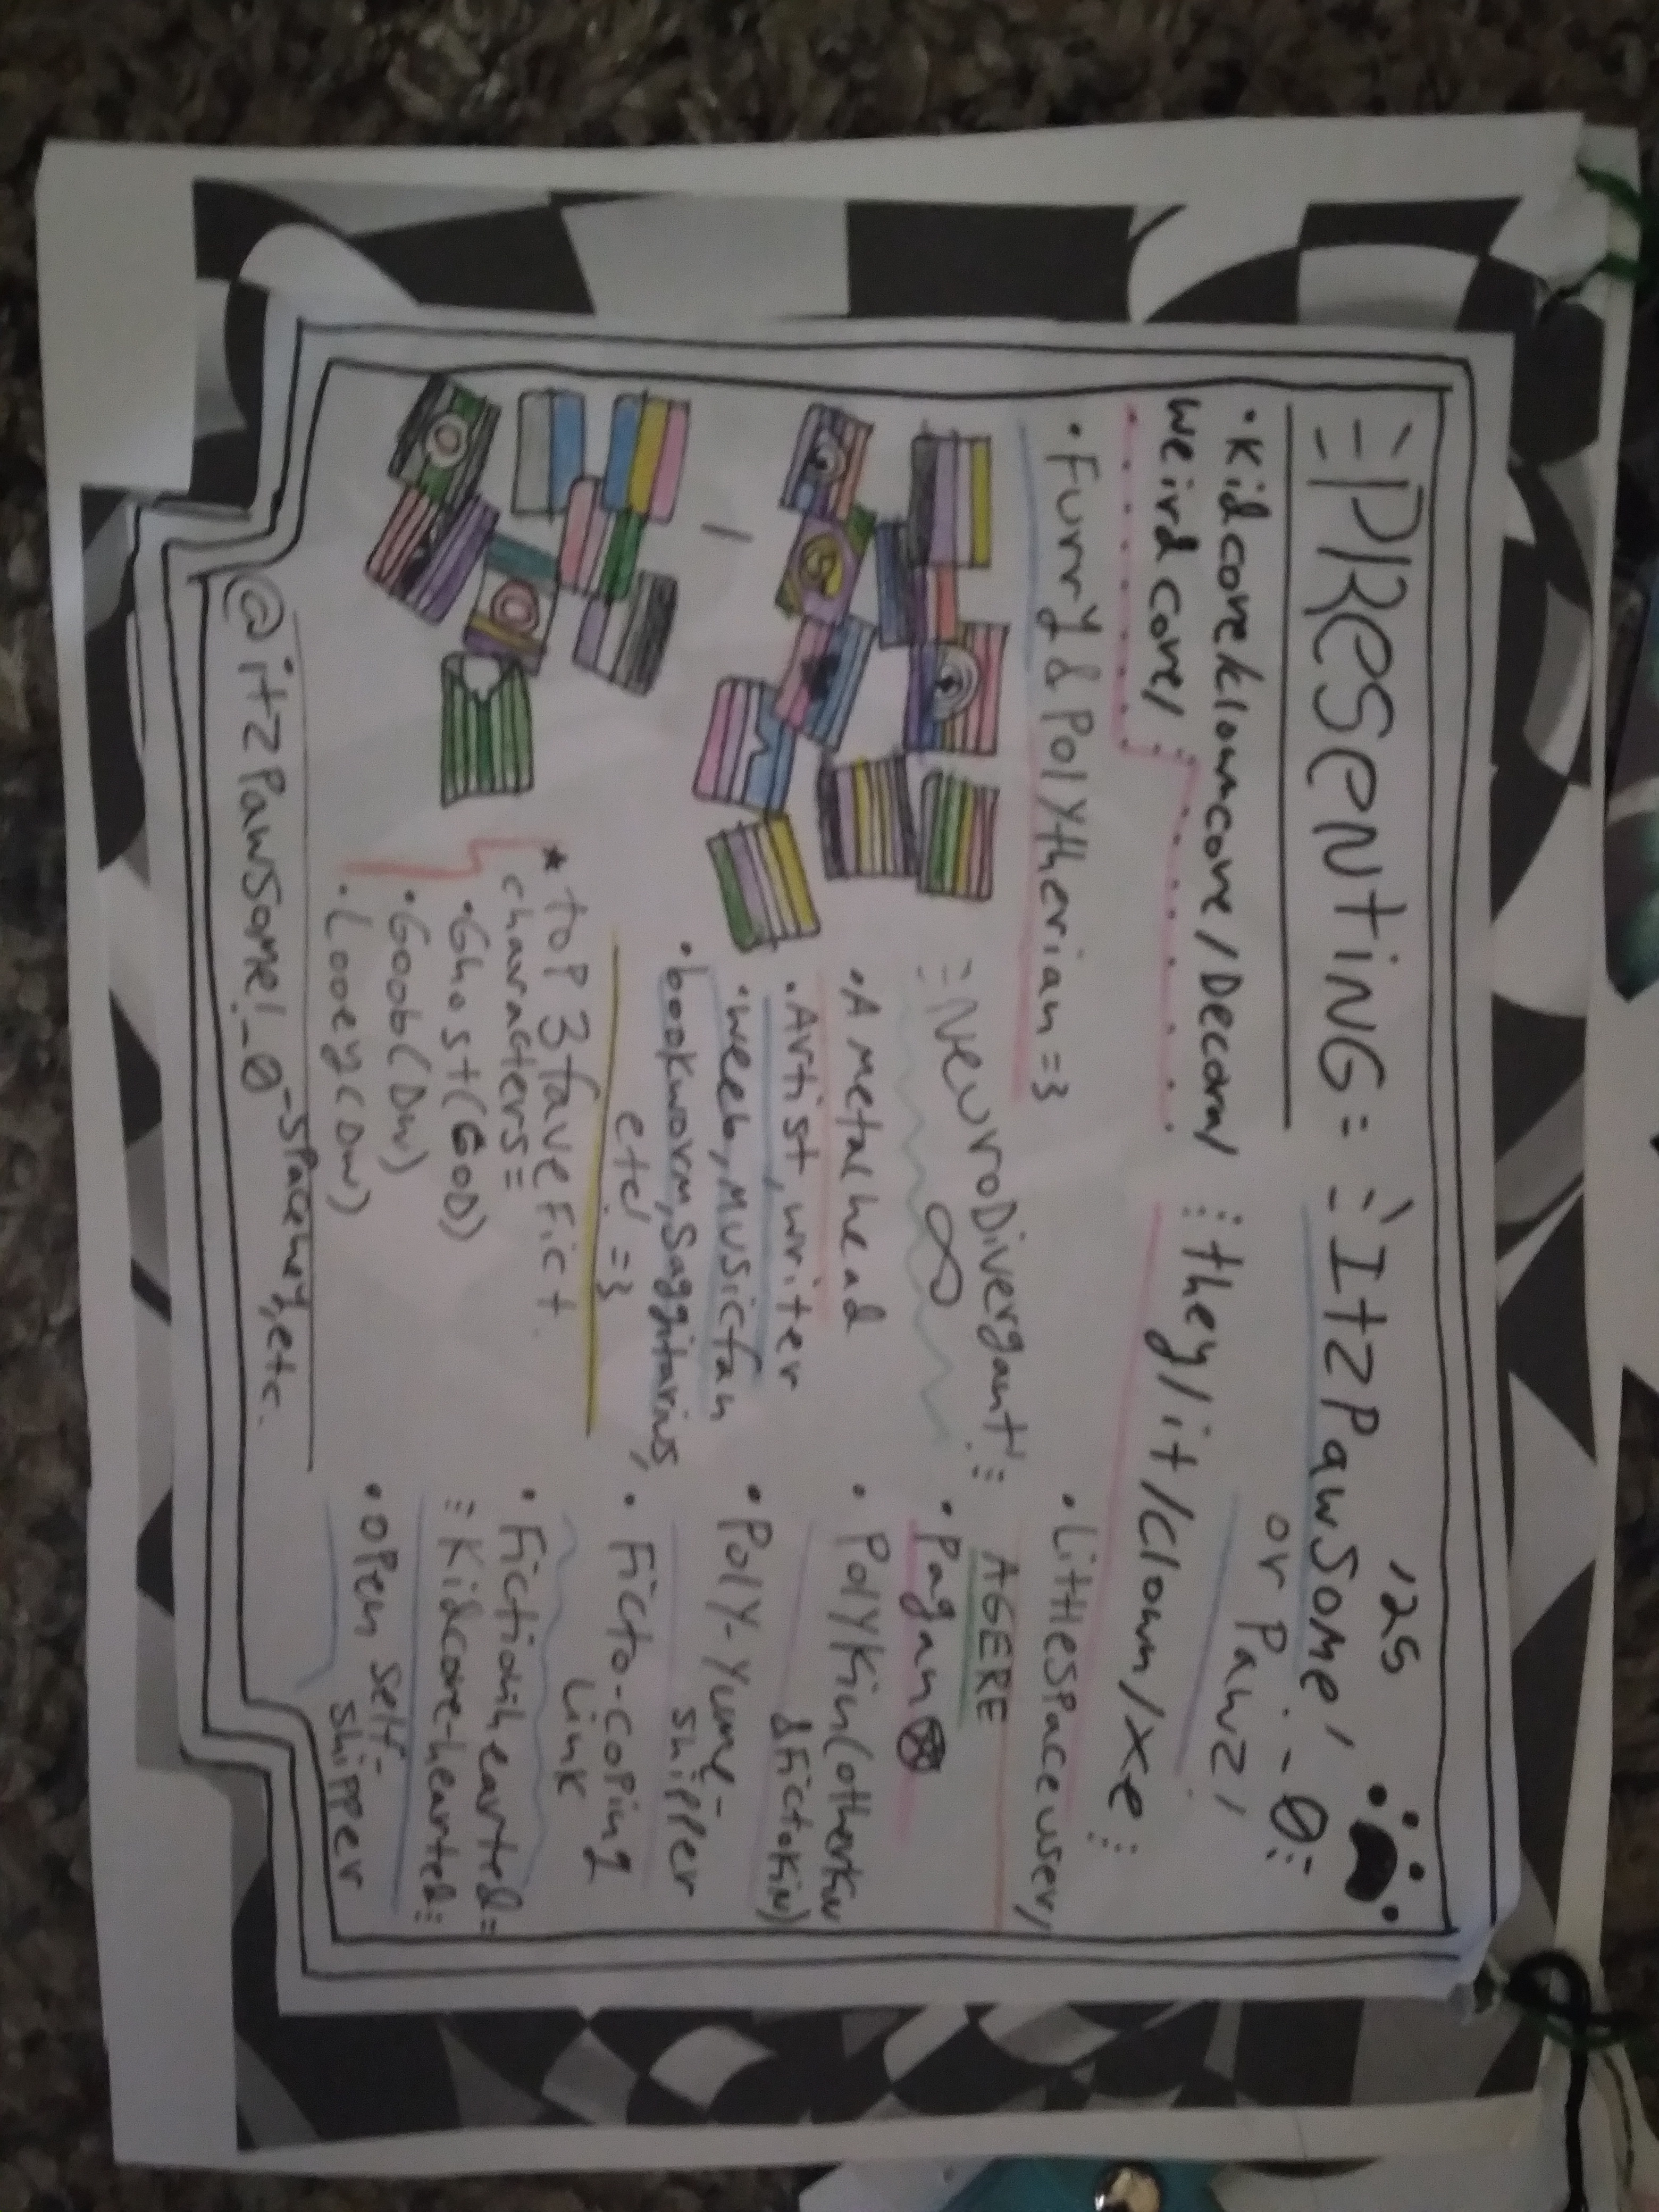 =PRESENTING= =ItzPawsome! '25
._0:
or Pawz!
• Kidcore/clowncore/Decora/
weirdcore/
⋮they/it/clown/xe⋮
• Furry & Polytherian =3
• Littlespace user/
AGERE
=NeuroDivergant!⋮
∞
• A metalhead
• Artist, writer
• weeb, Music fan
• bookworm, Saggitarius,
etc! =3
• Pagan
• Polykin (otherkin
& Fictokin)
• Poly-Yume-
shipper
• Ficto-coping
Link
• Fictionhearted=
⋮Kidcore-hearted⋮
• open self-
shipper
★ top 3 fave Fict.
characters=
• Ghost (GOD)
• Goob (DW)
• Looey (DW)
@itzPawsome!_0 -spacehey, etc.